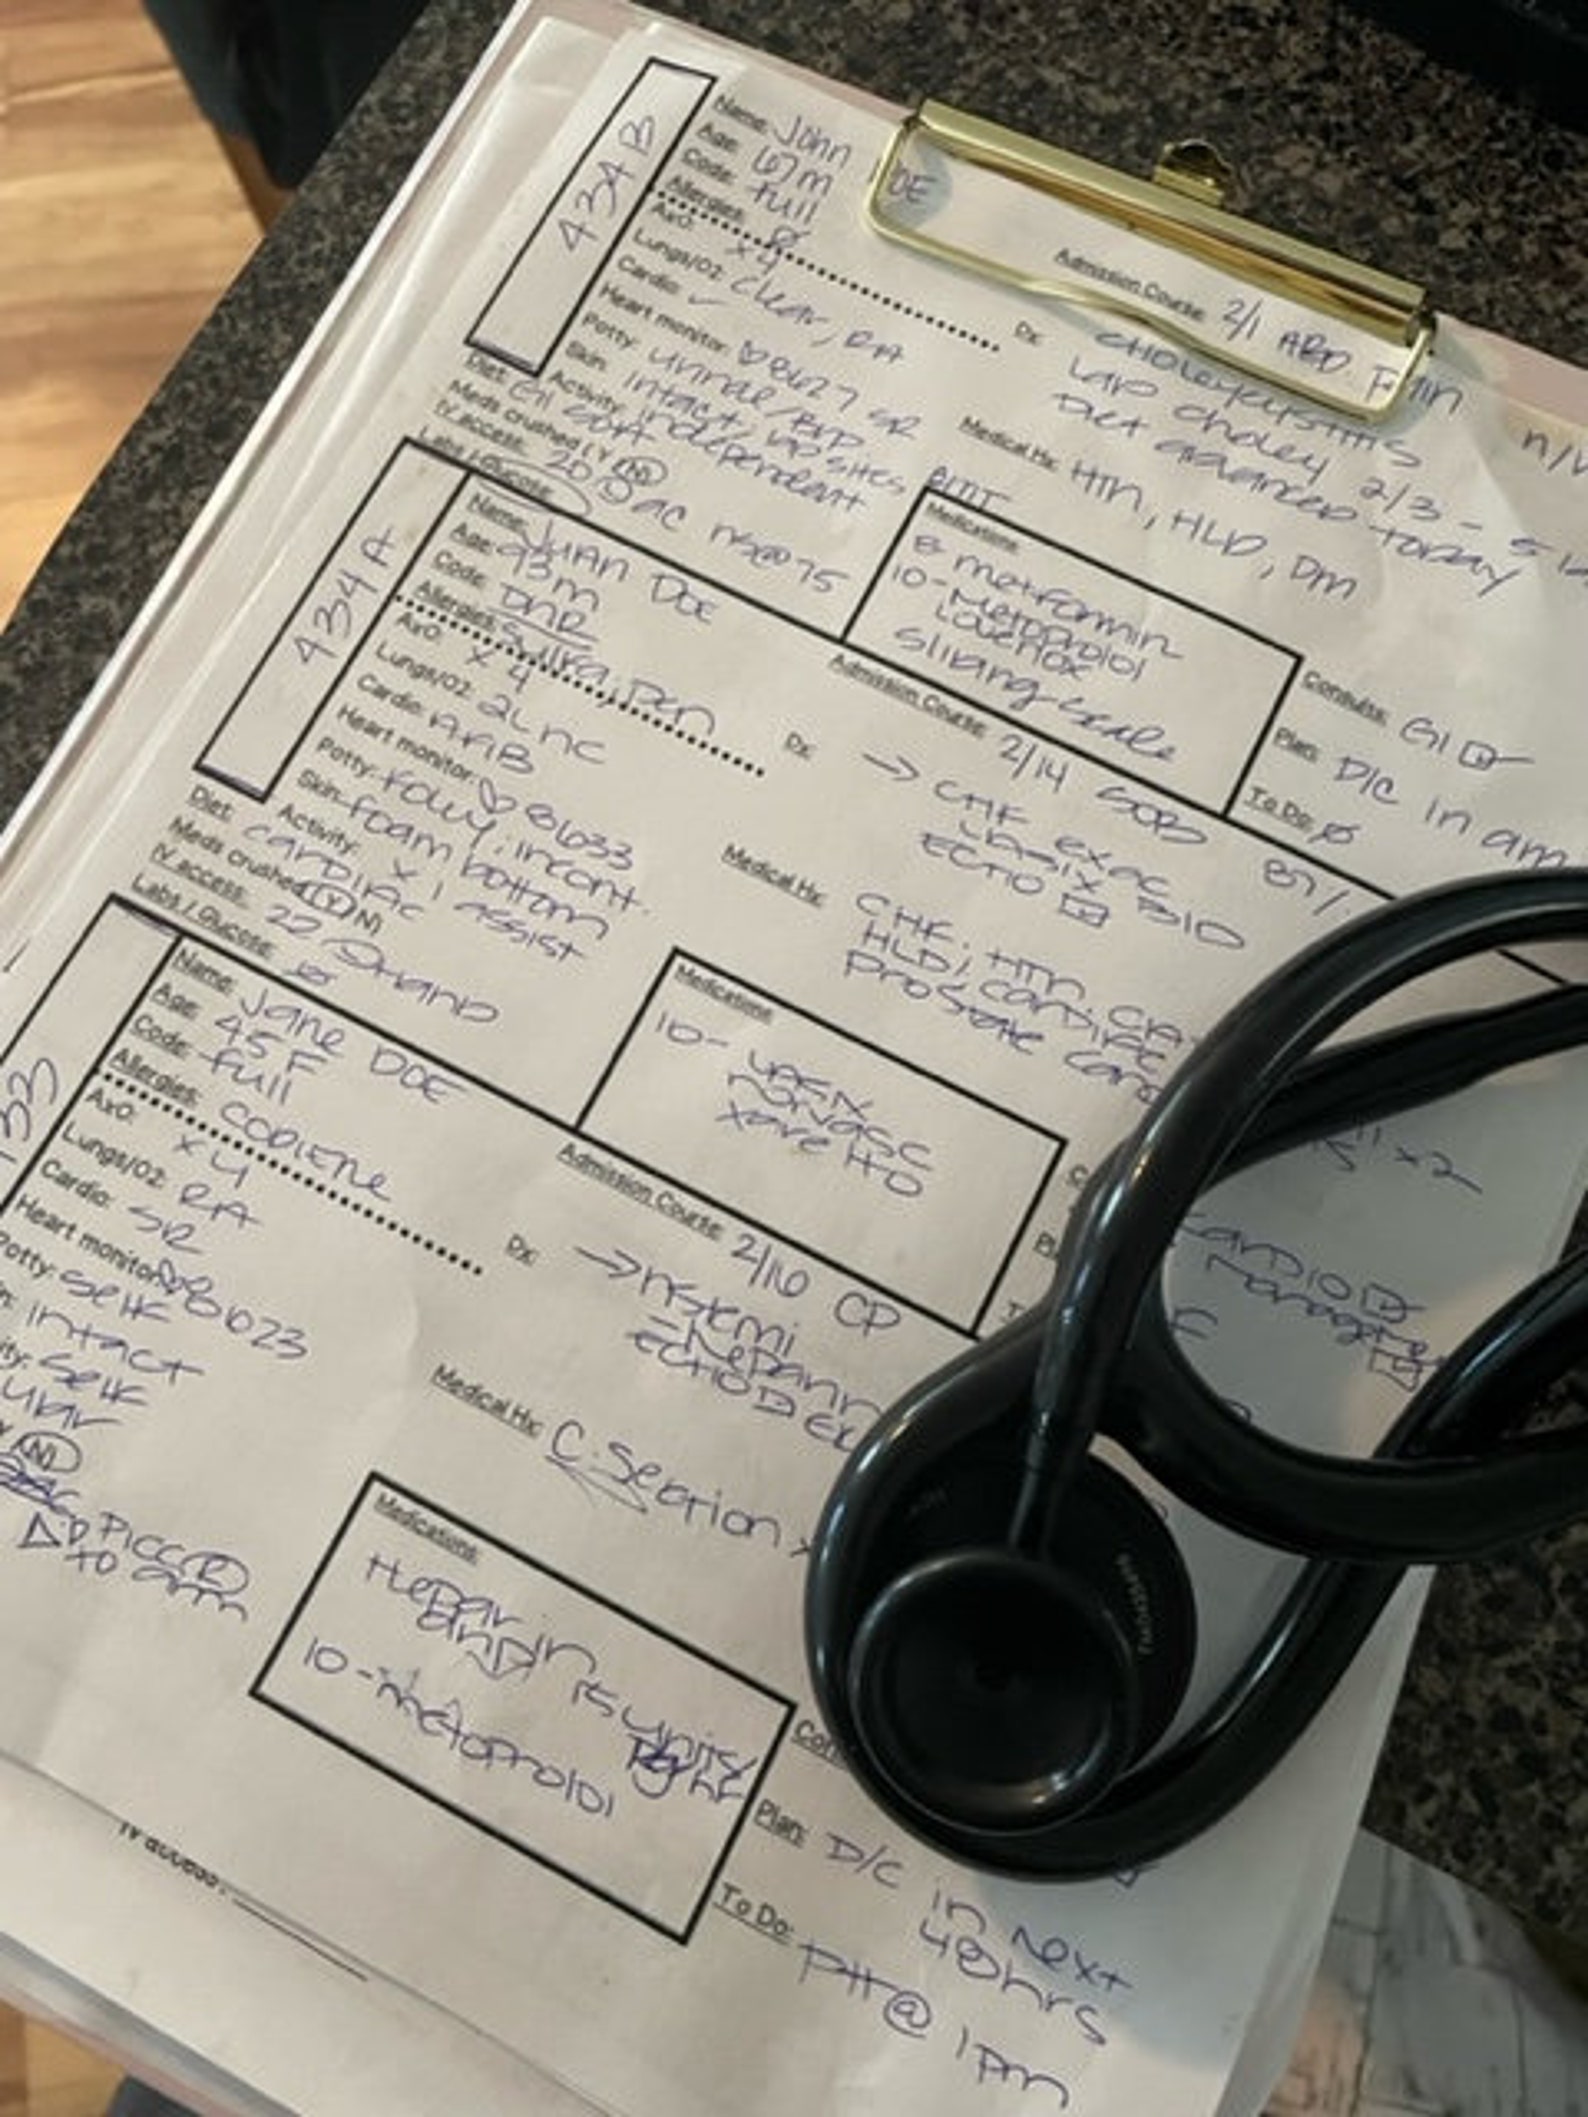 434 B
Name: John DOE
Age: 67m
Code: full
Allergies: ø
AxO: x4
Lungs/O2: clear, RA
Cardio: ✓
Heart monitor: ♡ 8627 SR
Potty: urinal/BRP
Skin: intact, lap sites
Activity: independent
Diet: GI soft
Meds crushed (Y/N)
IV access: 20 ac NS@75
Labs / Glucose:
Admission Course: 2/1 ABD
Dx: cholecystitis
Lap choley 2/3 -
Diet advanced today
Medical Hx: HTN, HLD, DM
Medications
8- metformin
10- Metoprolol
Lovenox
Sliding scale
Consults: GI
Plan: D/C in am
To Do: ø
434 A
Name: JUAN DOE
Age: 93m
Code: DNR
Allergies: Sulfa, Pen
AxO: x4
Lungs/O2: 2L nc
Cardio: AFIB
Heart monitor: ♡ 8633
Potty: Foley, incont.
Skin: foam bottom
Activity: x1 assist
Diet: cardiac
Meds crushed (Y/N)
IV access: 22 hand
Labs / Glucose: ø
Admission Course: 2/14 SOB 87%
Dx: → CHF exac
Lasix BID
ECHO
Medical Hx: CHF, HTN,
HLD, cardiac
prostate
Medications
10- Lasix
Norvasc
x2
cardio
Name: Jane DOE
Age: 45 F
Code: full
Allergies: CODIENE
AxO: x4
Lungs/O2: RA
Cardio: SR
Heart monitor: ♡ 8623
Potty: self
intact
self
(N)
PICC
arm
Admission Course: 2/16 CP
Dx: → NSTEMI
ECHO
Medical Hx: C. Section
Medications
Heparin
15 units/
hr
10-metoprolol
Plan: D/C in next
48hrs
To Do: PTT @ 1pm
IV access: